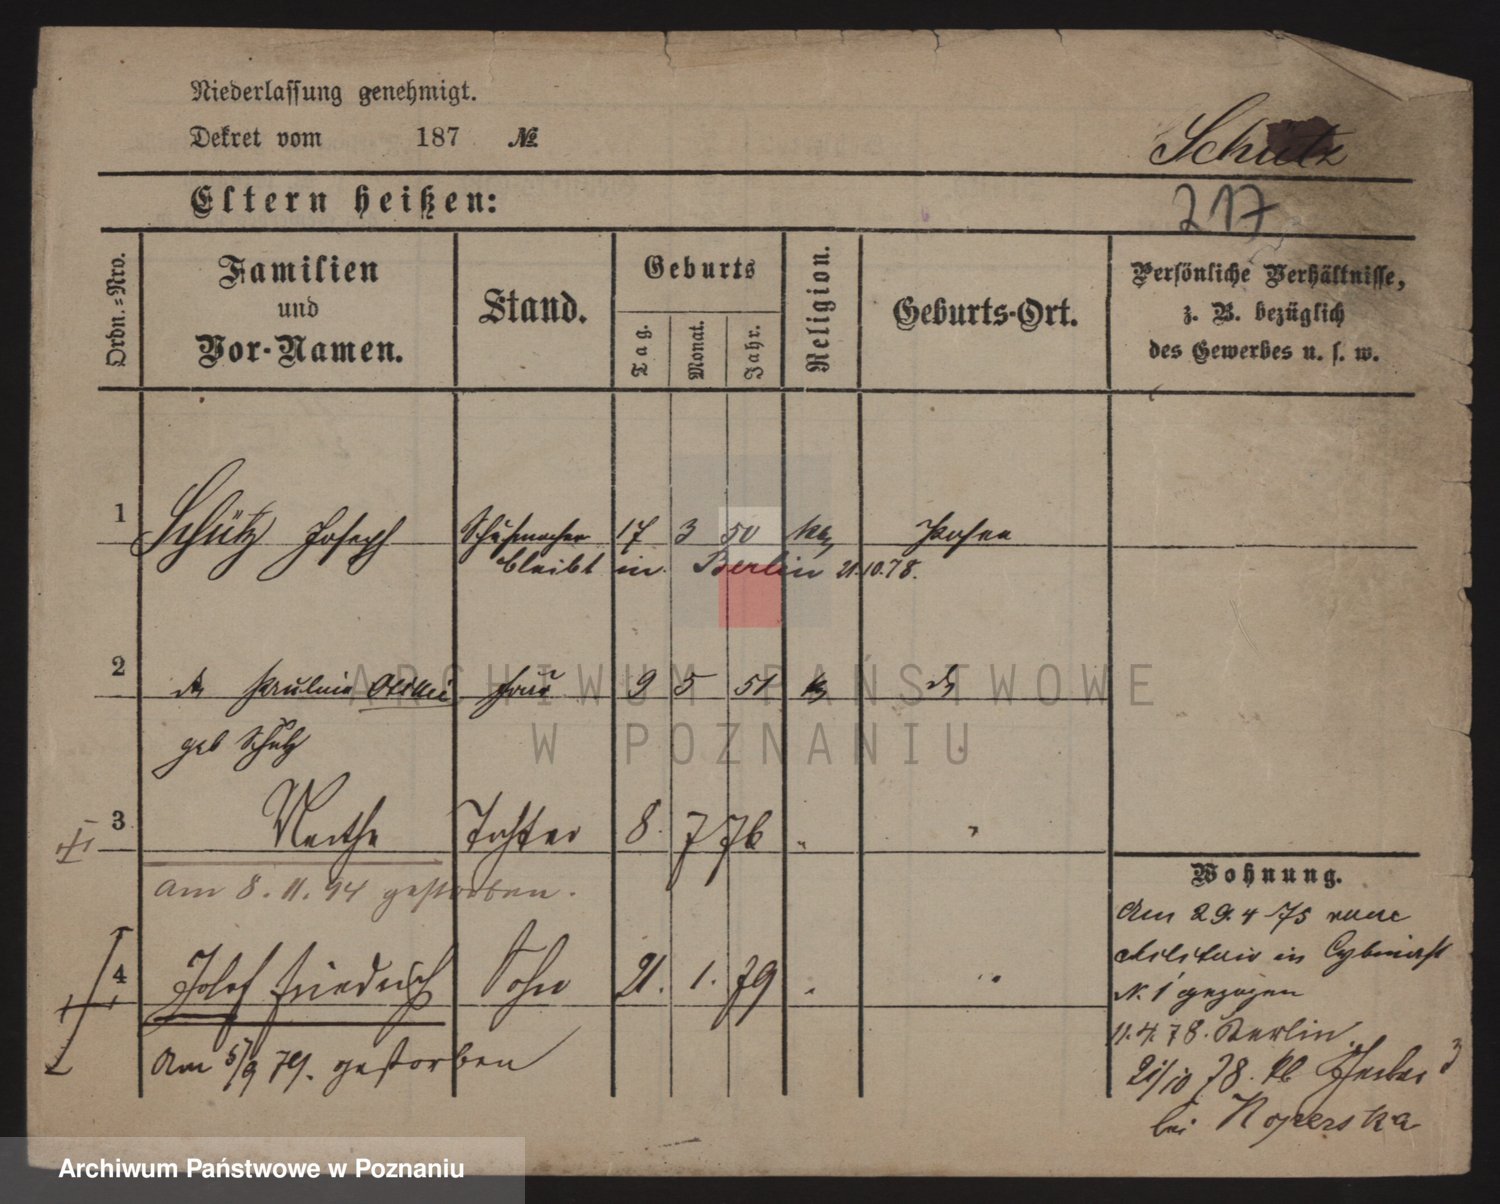 Niederlassung genehmigt.
Dekret vom 187 №
Schütz
217
Eltern heißen:
Ordn.-Nro.
Familien und Vor-Namen.
Stand.
Geburts
Tag. Monat. Jahr.
Religion.
Geburts-Ort.
Persönliche Verhältnisse,
z. B. bezüglich
des Gewerbes u. s. w.
1 Schütz Joseph Schuhmacher 17 3 50 kth Posen
bleibt in Berlin 21.10.78.
2 Ottilie Frau 9 5 51
geb Schulz
3 Tochter 8. 7 76 "
am 8. 11. 94 gestorben.
4 Josef Friedrich Sohn 21. 1. 79 "
Am 5/9 79. gestorben
Wohnung.
Am 29. 4 75 vom
Militair in
N. 1 gezogen
11. 4. 78. Berlin.
21/10 78.
bei Koperska
ARCHIWUM PAŃSTWOWE
W POZNANIU
Archiwum Państwowe w Poznaniu